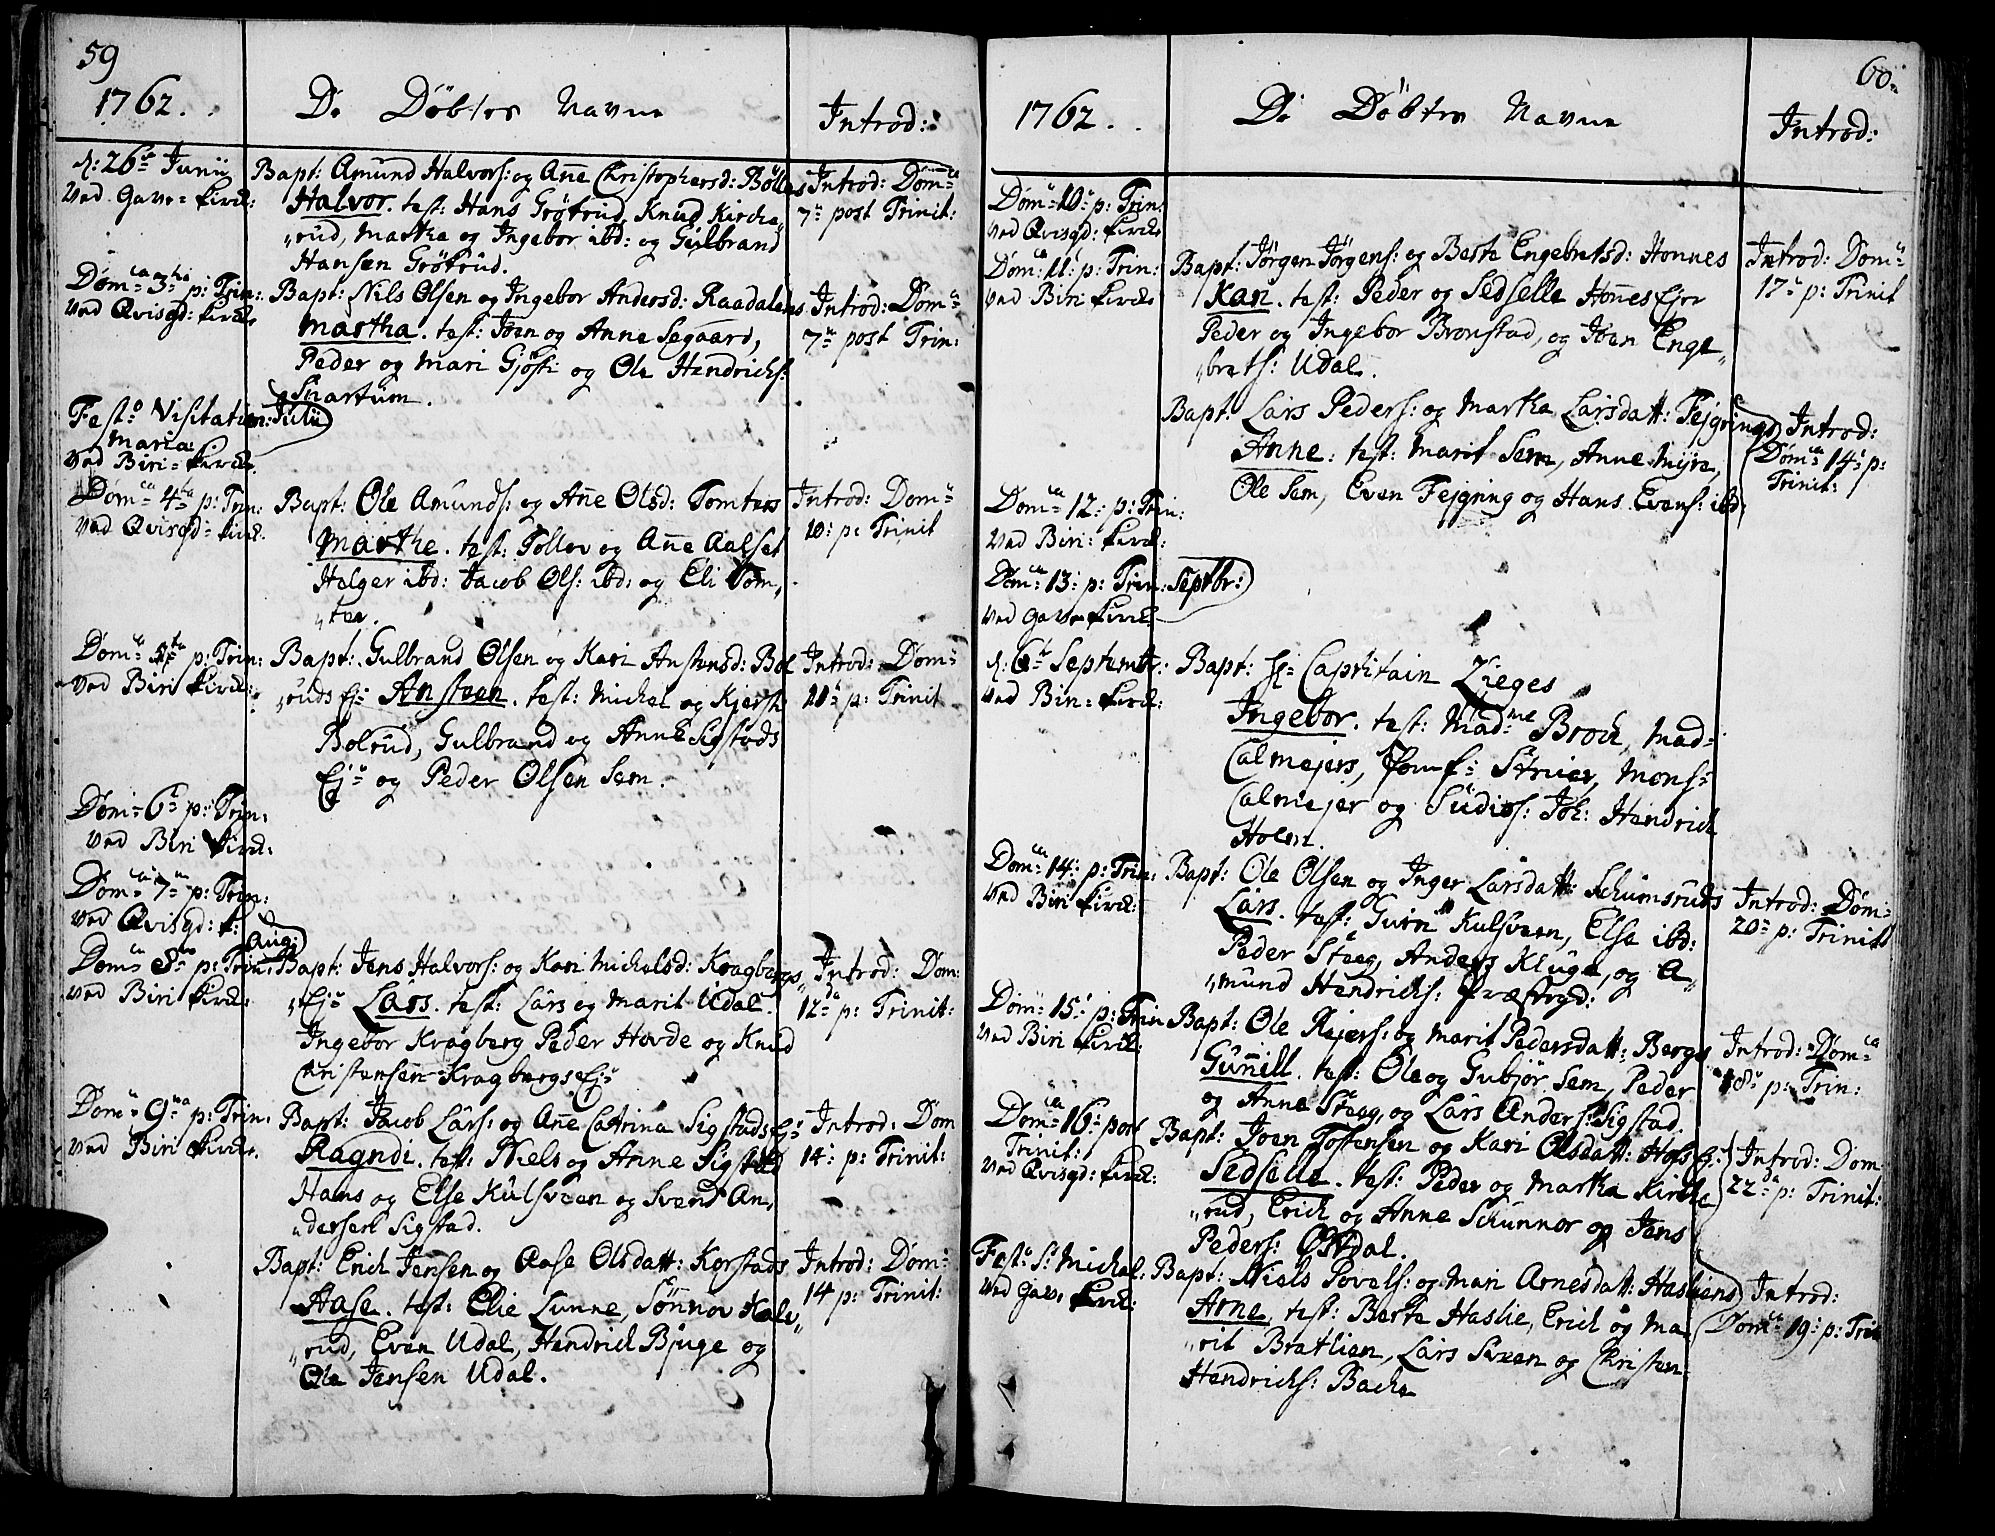 59
1762.
De Döbtes Navne
Introd:
d: 26de Junii
Ved Gave-Kirch:
Bapt: Amund Halvors: og Añe Christophersd: Böllers
Halvor. test: Hans Grötrud, Knud Kirche„
„rud, Martha og Ingebor ibd: og Gulbrand
Hansen Grötrud.
Introd: Dom:ca
7de post Trinit:
Dom:ca 3tia p: Trin:
Ved Qvisgd: Kirch:
Bapt: Nils Olsen og Ingebor Andersd: Raadalens
Martha. test: Joen og Anne Segaard,
Peder og Mari Gjösti og Ole Hendrichs:
Snartum.
Introd: Dom:ca
7de post Trin:
Festo Visitation: Julii
Mariæ
Ved Biri-Kirch:
Dom:ca 4ta p: Trin:
Ved Qvisgd: Kirch:
Bapt: Ole Amunds: og Añe Olsd: Tomters
Marthe. test: Tollov og Añe Aalset
Helger ibd: Jacob Ols: ibd: og Eli Tom„
„ter.
Introd: Dom:ca
10: p: Trinit
Dom:ca 5ta p: Trin:
Ved Biri Kirch:
Bapt: Gulbrand Olsen og Kari Anstensd: Bol
„ruds Ej: Ansteen. test: Michel og Kjersti
Bolrud, Gulbrand og Anne Sigstads
Ej: og Peder Olsen Sem.
Introd: Dom:ca
10: p: Trinit
Dom: 6ta p: Trin:
Ved Biri Kirch:
Dom:ca 7ma p: Trin:
Ved Qvisgd: K:
Aug:
Dom:ca 8va p: Trin:
Ved Biri Kirch:
Bapt: Jens Halvors: og Kari Michelsd: Kragbergs
„Ej: Lars. test: Lars og Marit Udal.
Ingebor Kragberg Peder Hovde og Knud
Christensen Kragbergs Ej:
Introd: Dom:
12da p: Trinit:
Dom:ca 9na p: Trin:
Ved Biri Kirch:
Bapt: Jacob Lars: og Añe Catrina Sigstads Ej:
Ragndi. test: Niels og Anne Sigstad
Hans og Else Kulsveen og Svend An„
„dersen Sigstad.
Introd: Dom
14: p: Trinit:
Bapt: Erich Jensen og Aase Olsdatt: Korstads
Aase. test: Elie Lunne, Sönnov Kalv„
„rud, Even Udal, Hendrich Bjuge og
Ole Jensen Udal.
Introd: Dom:
14 p: Trinit:
60.
1762.
De Döbtes Navne
Introd:
Dom:ca 10: p: Trin:
Ved Qvisgd: Kirch:
Dom:ca 11: p: Trin:
Ved Biri Kirch:
Bapt: Jörgen Jörgens: og Berte Engebretsd: Honnes
Kari. test: Peder og Sedselle Hoñes Ejer
Peder og Ingebor Bronstad, og Joen Enge„
„brets: Udal.
Introd: Dom:ca
17: p: Trinit
Bapt: Lars Peders: og Martha Larsdatt: Fejgrings
Anne. test: Marit Sem, Anne Myre,
Ole Sem, Even Fejgring og Hans Evens: ibd:
Introd:
Dom:ca 14: p:
Trinit:
Dom:ca 12: p: Trin:
Ved Biri: Kirch:
Dom:ca 13: p: Trin: Septbr:
Ved Gave Kirch:
d: 6te Septembr:
Ved Biri: Kirch:
Bapt: Hr: Capitain Zieges
Ingebor. test: Madme Brock, Mad:
Calmejers, Jomf: Struer, Mons:
Calmejer og Sudios: Joh: Hendrich
Holm.
Dom:ca 14: p: Trin:
Ved Biri Kirch:
Bapt: Ole Olsen og Inger Larsdatt: Schumsruds
Lars. test: Guru Kulsveen, Else ibd:
Peder Steeg, Anders Kluge, og A„
„mund Hendrichs: Præstegd:
Introd: Dom:
20de p: Trinit
Dom: 15: p: Trin
Ved Biri Kirch:
Bapt: Ole Rejers: og Marit Pedersdatt: Bergs
Guñill. test: Ole og Gubjör Sem, Peder
og Anne Steeg, og Lars Anders: Sigstad.
Introd: Dom:ca
18: p: Trin:
Dom:ca 16: post
Trinit:
Ved Qvisgd: Kirch:
Bapt: Joen Tostensen og Kari Olsdatt: Hofs Ej:
Sedselle. test: Peder og Martha Kirche
„rud, Erich og Anne Schunnor og Jens
Peders: Ostdal.
Introd: Dom
22da p: Trinit:
Festo St: Michal:
Ved Gave Kirch:
Bapt: Niels Povels: og Mari Arnesdatt: Hasliens
Arne. test: Berte Haslie, Erich og Ma„
„rit Bratlien, Lars Sveen og Christen
Hendrichs: Bache
Introd:
Dom:ca 19: p: Trin